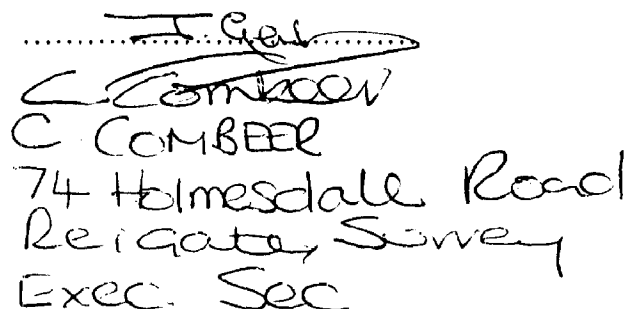 C. Combeer
C COMBEER
74 Holmesdale Road
Reigate, Surrey
Exec. Sec